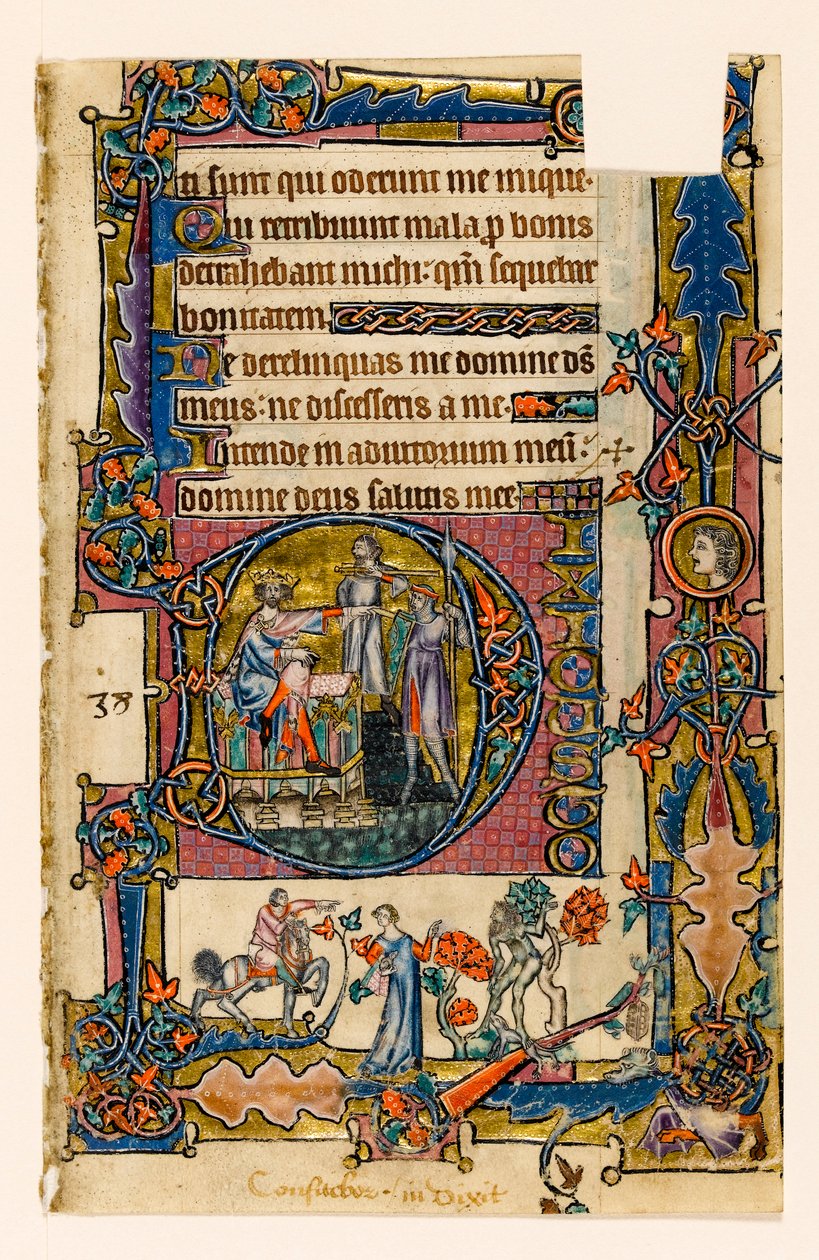 ti sunt qui oderunt me inique.
Qui retribuunt mala ꝓ bonis
detrahebant michi: qm̄ sequebar
bonitatem.
Ne derelinquas me domine ds̄
meus: ne discesseris a me.
Intende in adiutorium meū:
domine deus salutis mee.
DIXI CUSTO
38
Confitebor. in Dixit